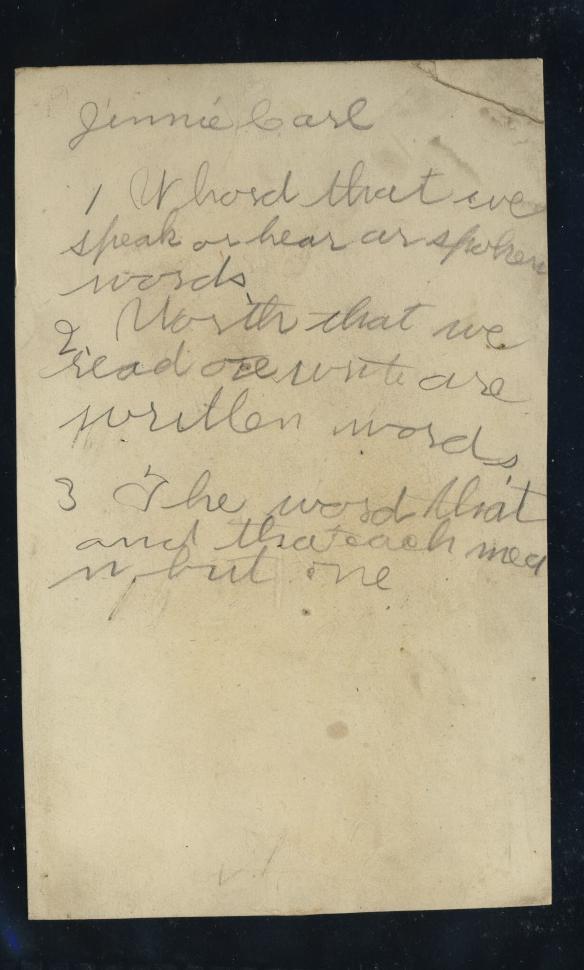 Jinnie Carl
1 Whord that we
speak or hear ar spoken
words
2 Worth that we
read ore write are
written words
3 The word that
and that each mea
n but one